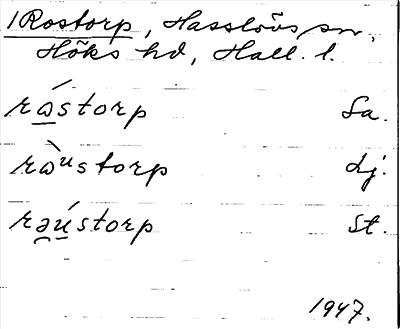 1 Rostorp, Hasslövs sn,
Höks hd, Hall. l.
rɷ́storp Sa.
rɷ̀ᵘstorp Lj.
rəústorp St.
1947.